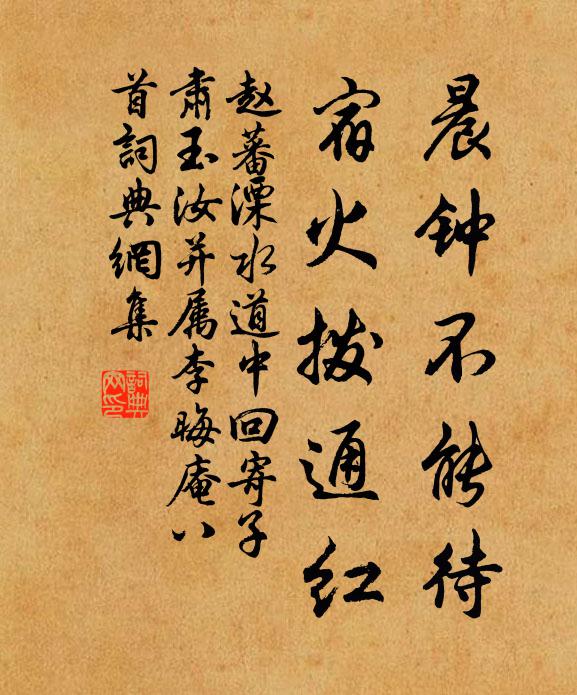 晨钟不能待
宿火拨通红
赵蕃溧水道中回寄子
肃玉汝并属李晦庵八
首词典網集
詞典
网印